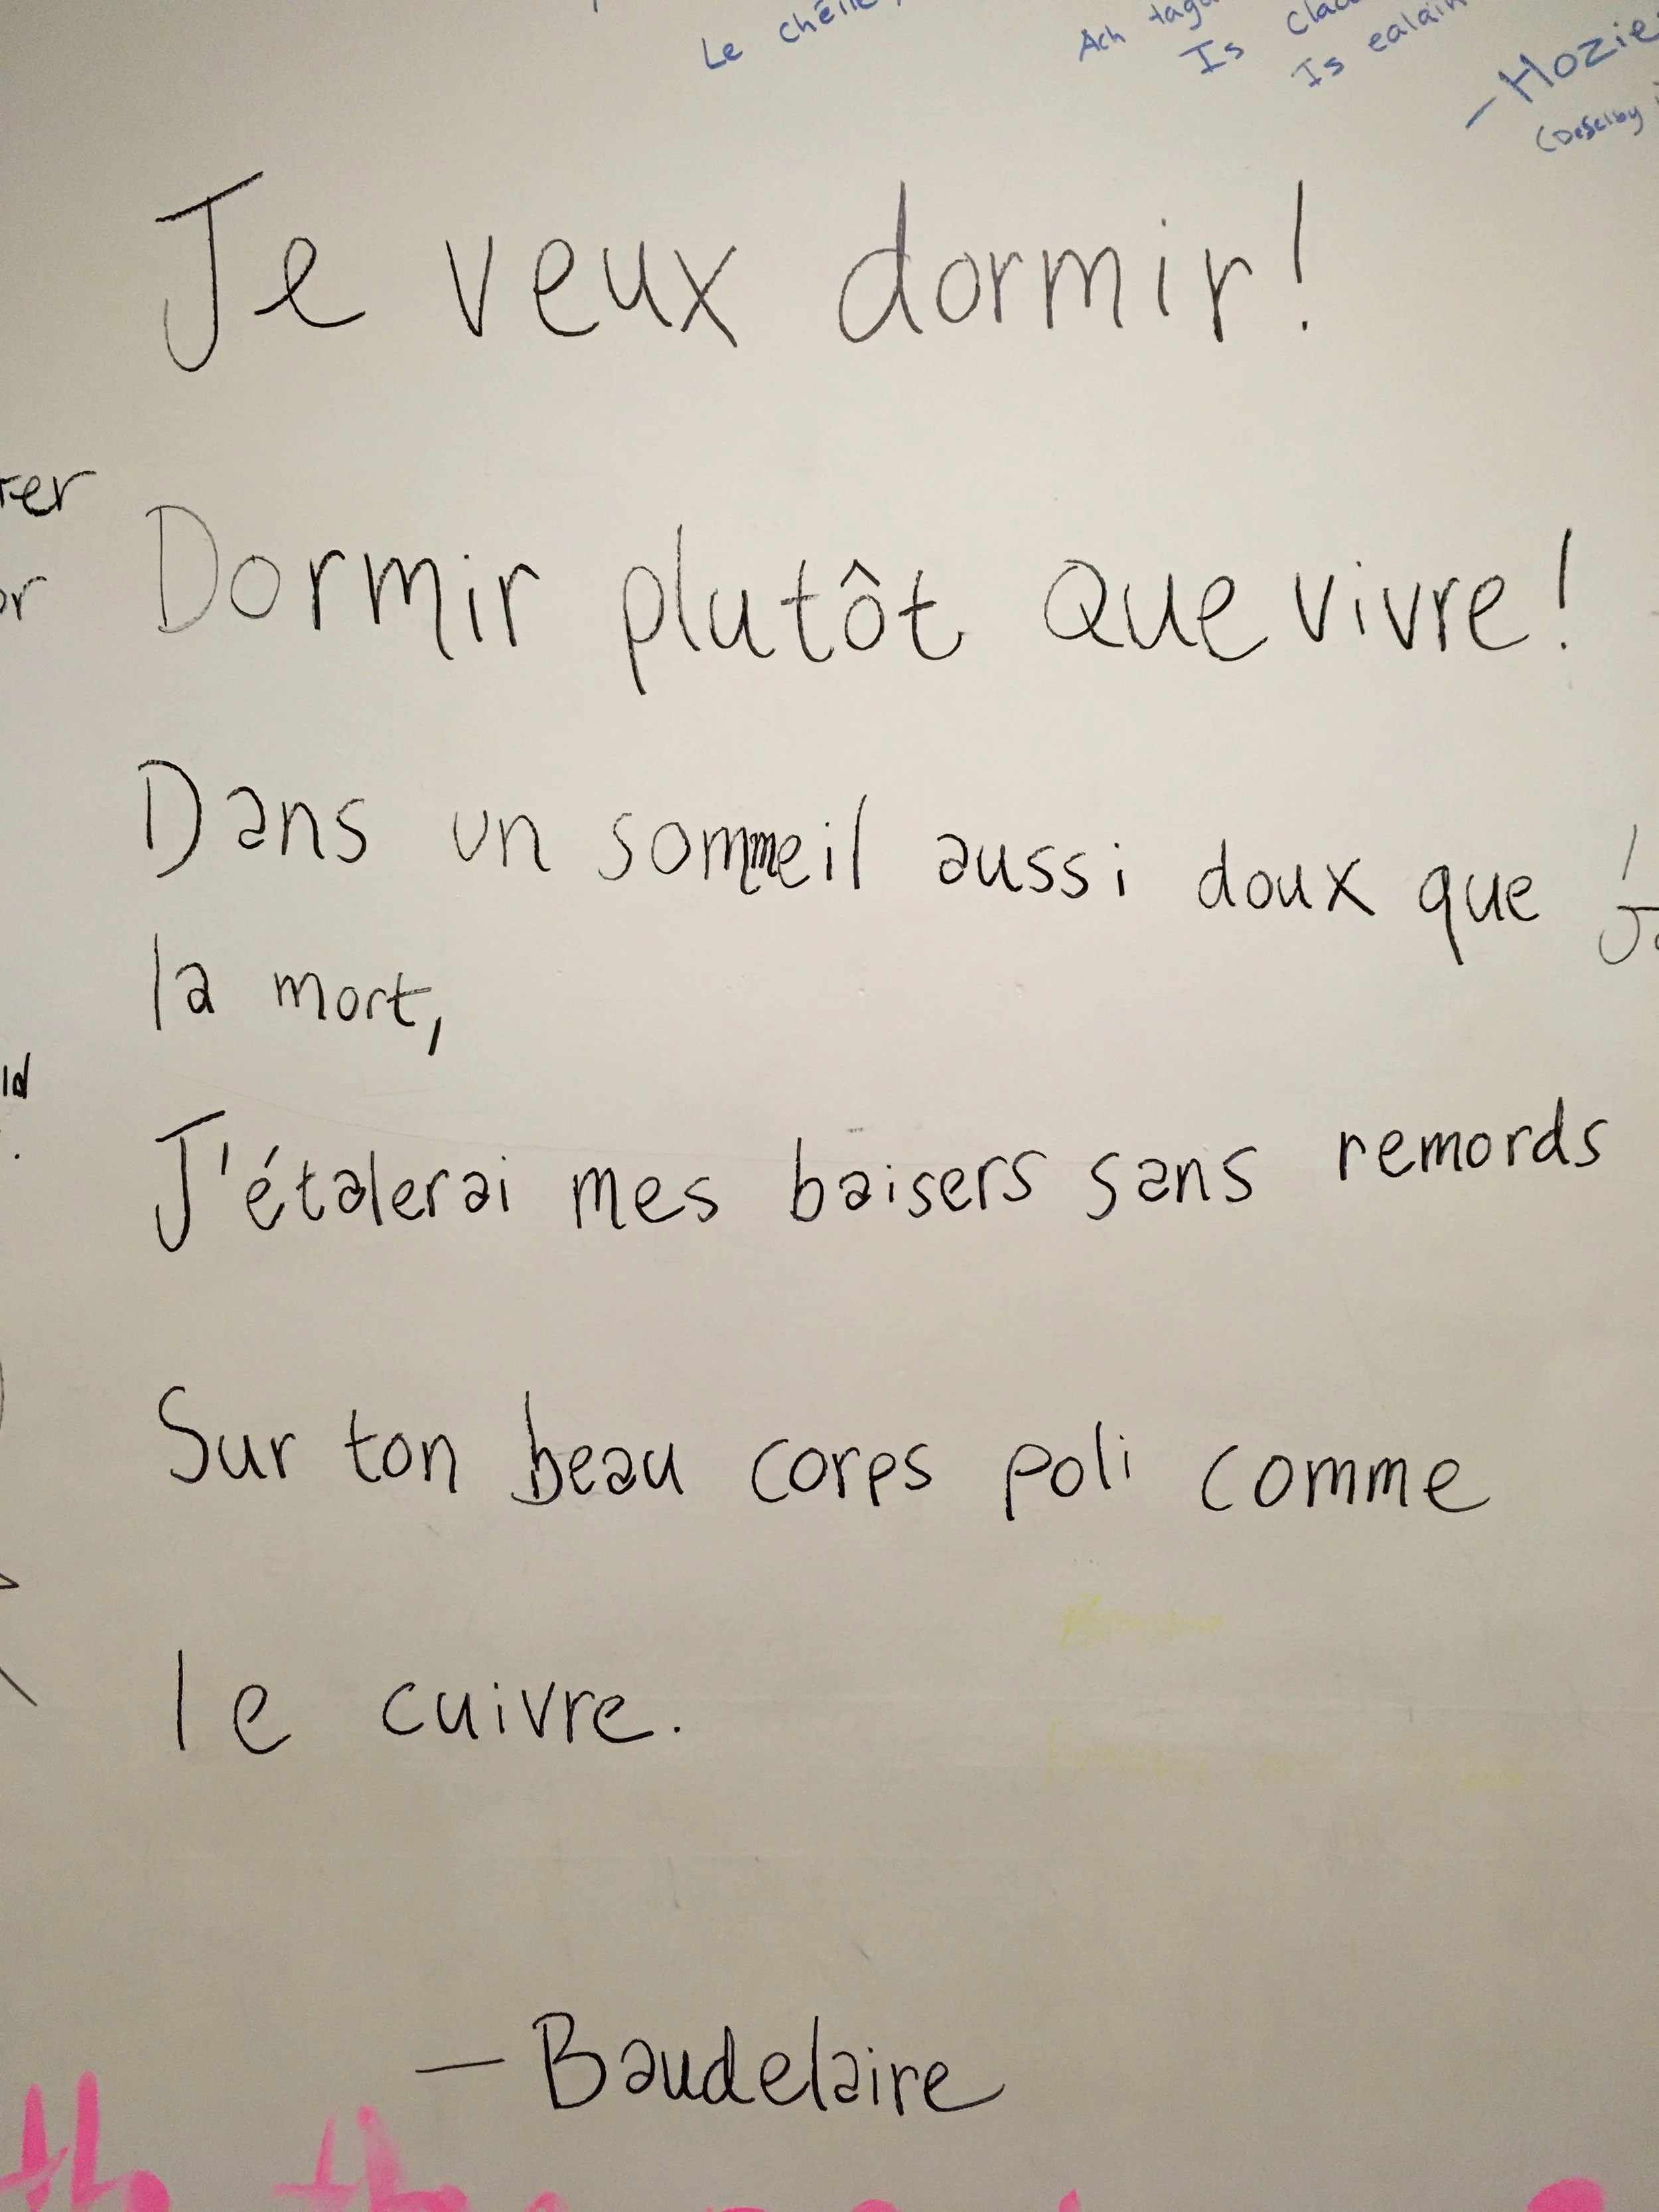 Le chéile,
Ach
Is
Is
—Hozie
Je veux dormir!
Dormir plutôt que vivre!
Dans un sommeil aussi doux que
la mort,
J'étalerai mes baisers sans remords
Sur ton beau corps poli comme
le cuivre.
—Baudelaire